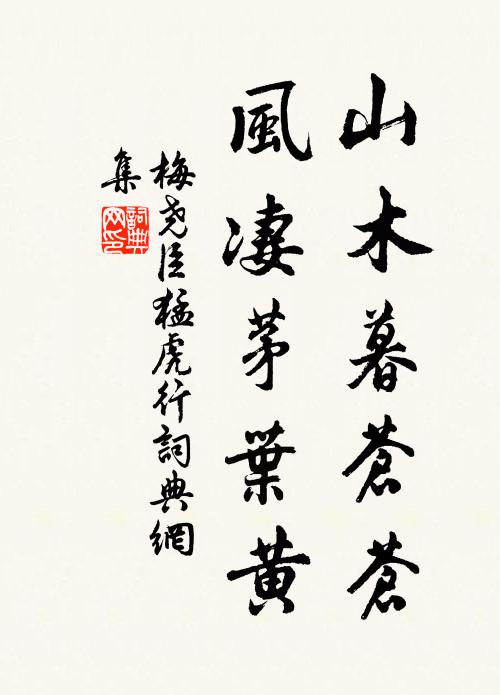 山木暮蒼蒼
風凄茅葉黄
梅尧臣猛虎行詞典網
集
詞典
网印